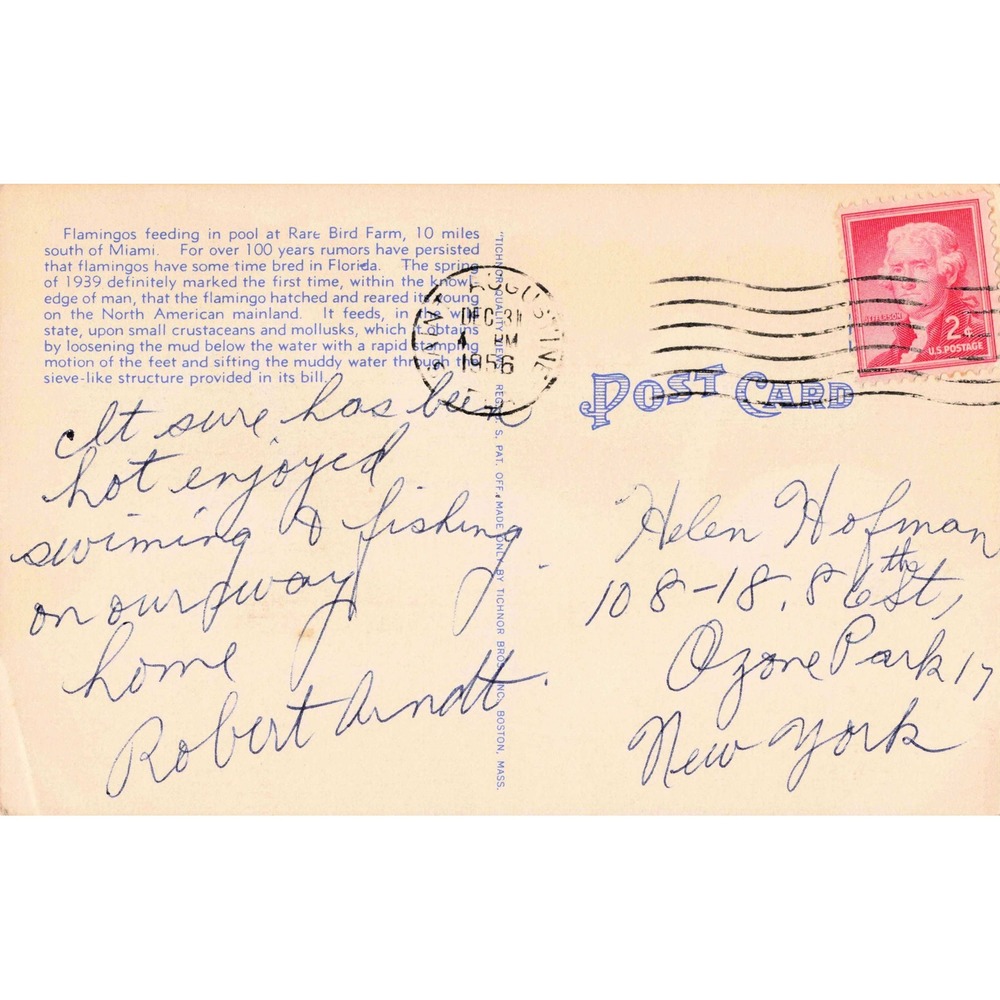 Flamingos feeding in pool at Rare Bird Farm, 10 miles
south of Miami. For over 100 years rumors have persisted
that flamingos have some time bred in Florida. The spring
of 1939 definitely marked the first time, within the knowl-
edge of man, that the flamingo hatched and reared its young
on the North American mainland. It feeds, in the wild
state, upon small crustaceans and mollusks, which it obtains
by loosening the mud below the water with a rapid stamping
motion of the feet and sifting the muddy water through the
sieve-like structure provided in its bill.
It sure has been
hot enjoyed
swiming & fishing
on our way
home
Robert Arndt.
"TICHNOR QUALITY VIEWS," REG. U. S. PAT. OFF. MADE ONLY BY TICHNOR BROS., INC., BOSTON, MASS.
AUGUSTINE
DEC 31
4 PM
1956
JEFFERSON
2¢
U.S. POSTAGE
POST CARD
Helen Hofman
108-18, 86th St,
Ozone Park 17
New York